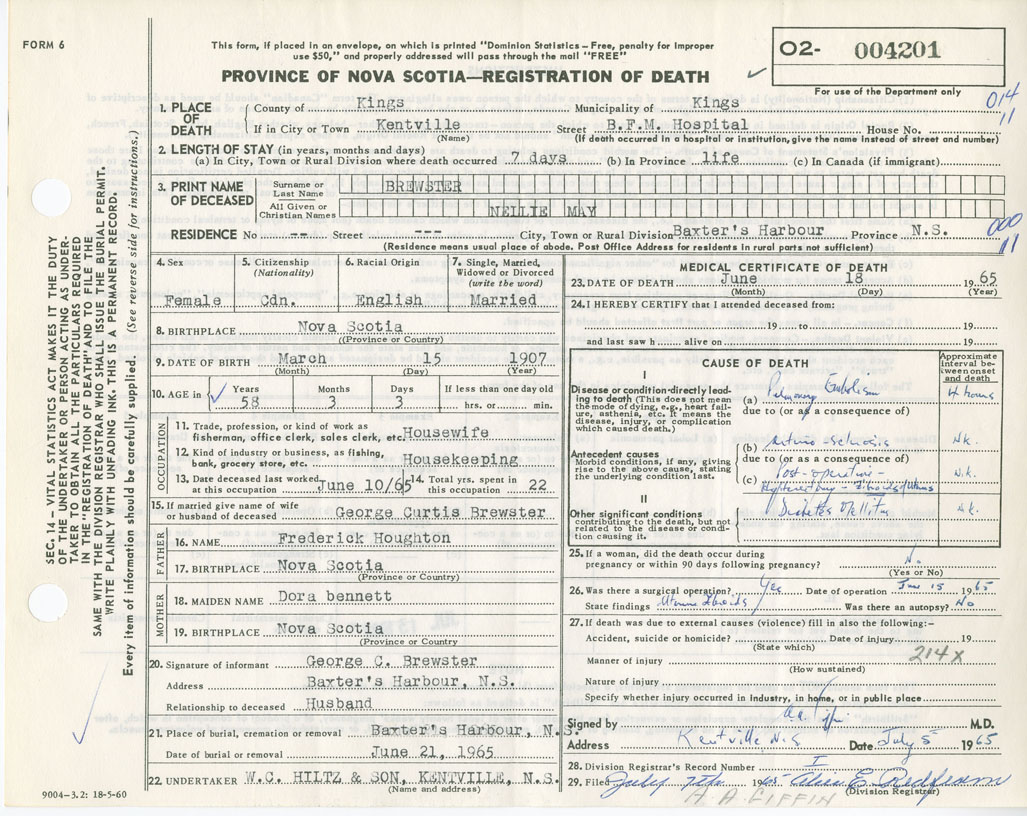 FORM 6
This form, if placed in an envelope, on which is printed "Dominion Statistics—Free, penalty for improper
use $50," and properly addressed will pass through the mail "FREE"
PROVINCE OF NOVA SCOTIA—REGISTRATION OF DEATH
O2- 004201
For use of the Department only
014
11
1. PLACE OF DEATH
County of Kings Municipality of Kings
If in City or Town Kentville Street B.F.M. Hospital House No.
(Name) (If death occurred in hospital or institution, give the name instead of street and number)
2. LENGTH OF STAY (in years, months and days)
(a) In City, Town or Rural Division where death occurred 7 days (b) In Province life (c) In Canada (if immigrant)
3. PRINT NAME OF DECEASED
Surname or Last Name BREWSTER
All Given or Christian Names NELLIE MAY
000
11
RESIDENCE No -- Street --- City, Town or Rural Division Baxter's Harbour Province N.S.
(Residence means usual place of abode. Post Office Address for residents in rural parts not sufficient)
4. Sex
Female
5. Citizenship
(Nationality)
Cdn.
6. Racial Origin
English
7. Single, Married,
Widowed or Divorced
(write the word)
Married
8. BIRTHPLACE Nova Scotia
(Province or Country)
9. DATE OF BIRTH March 15 1907
(Month) (Day) (Year)
10. AGE in
Years Months Days If less than one day old
58 3 3 hrs. or min.
OCCUPATION
11. Trade, profession, or kind of work as
fisherman, office clerk, sales clerk, etc. Housewife
12. Kind of industry or business, as fishing,
bank, grocery store, etc. Housekeeping
13. Date deceased last worked
at this occupation June 10/65
14. Total yrs. spent in
this occupation 22
15. If married give name of wife
or husband of deceased George Curtis Brewster
FATHER
16. NAME Frederick Houghton
17. BIRTHPLACE Nova Scotia
(Province or Country)
MOTHER
18. MAIDEN NAME Dora bennett
19. BIRTHPLACE Nova Scotia
(Province or Country)
20. Signature of informant George C. Brewster
Address Baxter's Harbour, N.S.
Relationship to deceased Husband
21. Place of burial, cremation or removal Baxter's Harbour, N.S.
Date of burial or removal June 21, 1965
22. UNDERTAKER W.C. HILTZ & SON, KENTVILLE, N.S.
(Name and address)
MEDICAL CERTIFICATE OF DEATH
23. DATE OF DEATH June 18 1965
(Month) (Day) (Year)
24. I HEREBY CERTIFY that I attended deceased from:
19 to 19
and last saw h alive on 19
CAUSE OF DEATH
Approximate interval between onset and death
I
Disease or condition directly leading to death (This does not mean
the mode of dying, e.g., heart failure, asthenia, etc. It means the
disease, injury, or complication
which caused death.)
(a) Pulmonary Embolism 4 hours
due to (or as a consequence of)
Antecedent causes
Morbid conditions, if any, giving
rise to the above cause, stating
the underlying condition last.
(b) Arterio-sclerosis N.K.
due to (or as a consequence of)
(c) Post-operative - N.K.
Hysterectomy - Fibroids of Uterus
II
Other significant conditions
contributing to the death, but not
related to the disease or condition causing it.
Diabetes Mellitus N.K.
25. If a woman, did the death occur during
pregnancy or within 90 days following pregnancy? No
(Yes or No)
26. Was there a surgical operation? Yes Date of operation June 15 1965
State findings Uterine Fibroids Was there an autopsy? No
27. If death was due to external causes (violence) fill in also the following:—
Accident, suicide or homicide? Date of injury 19
(State which)
214X
Manner of injury
(How sustained)
Nature of injury
Specify whether injury occurred in industry, in home, or in public place
Signed by M.D.
Address Kentville N.S. Date July 5 1965
28. Division Registrar's Record Number I
29. Filed July 7th 1965
(Division Registrar)
A A GIFFIN
SEC. 14—VITAL STATISTICS ACT MAKES IT THE DUTY
OF THE UNDERTAKER OR PERSON ACTING AS UNDERTAKER TO OBTAIN ALL THE PARTICULARS REQUIRED
IN THE "REGISTRATION OF DEATH" AND TO FILE THE
SAME WITH THE DIVISION REGISTRAR WHO SHALL ISSUE THE BURIAL PERMIT.
WRITE PLAINLY WITH UNFADING INK. THIS IS A PERMANENT RECORD.
Every item of information should be carefully supplied. (See reverse side for instructions.)
9004-3.2: 18-5-60